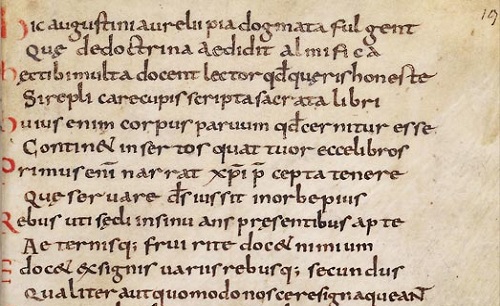 Hic augustini aurelii pia dogmata fulgent
Que dedoctrina aedidit almifica
hec tibi multa docent lector qđ queris honeste
Si repli care cupis scripta sacrata libri
Ouius enim corpus paruum qđ cernitur esse
Contin& insertos quattuor ecce libros
Primus eni narrat xp̄i p̄cepta tenere
Que seruare d̄s iussit in orbe pius
Rebus uti secli insinuans presentibus apte
Aeternisq; frui rite doc& nimium
Edoc& & signis uariis rebusq; secundus
Qualiter aut quomodo nosce resigna queant